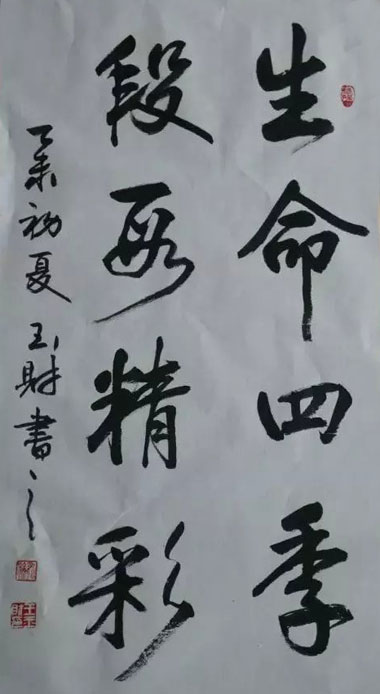 生命四季
段段精彩
乙未初夏玉財書之